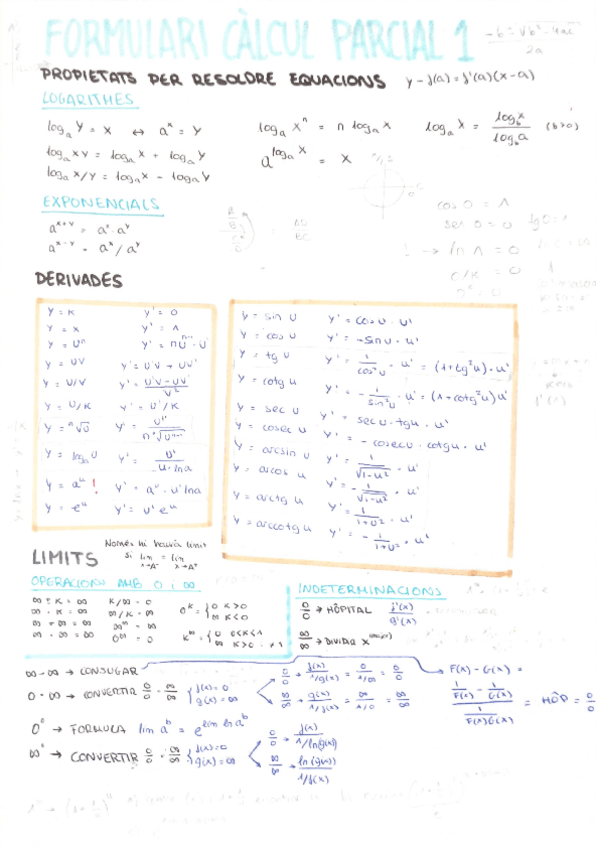 FORMULARI CÀLCUL PARCIAL 1
PROPIETATS PER RESOLDRE EQUACIONS y - f(a) = f'(a)(x-a)
LOGARITMES
log_a y = x ↔ a^x = y
log_a x^n = n log_a x
log_a x = log_b x / log_b a (b>0)
log_a xy = log_a x + log_a y
a^(log_a x) = x
log_a x/y = log_a x - log_a y
EXPONENCIALS
a^(x+y) = a^x · a^y
a^(x-y) = a^x / a^y
cos 0 = 1
sen 0 = 0
ln 1 = 0
0/K = 0
DERIVADES
y = K y' = 0
y = x y' = 1
y = u^n y' = nu^(n-1) · u'
y = uv y' = u'v + uv'
y = u/v y' = (u'v - uv') / v²
y = u/K y' = u'/K
y = ⁿ√u y' = u' / n ⁿ√u^(n-1)
y = log_a u y' = u' / u · ln a
y = a^u ! y' = a^u · u' ln a
y = e^u y' = u' e^u
y = sin u y' = cos u · u'
y = cos u y' = -sin u · u'
y = tg u y' = 1/cos²u · u' = (1+tg²u) u'
y = cotg u y' = -1/sin²u · u' = (1+cotg²u) u'
y = sec u y' = sec u · tg u · u'
y = cosec u y' = -cosec u · cotg u · u'
y = arcsin u y' = 1/√(1-u²) · u'
y = arcos u y' = -1/√(1-u²) · u'
y = arctg u y' = 1/(1+u²) · u'
y = arccotg u y' = -1/(1+u²) · u'
LIMITS
Només hi haurà límit
si lim x→A⁻ = lim x→A⁺
OPERACIONS AMB 0 i ∞
∞ + K = ∞ K/∞ = 0
∞ · K = ∞ ∞/K = ∞
∞ + ∞ = ∞ ∞^∞ = ∞
∞ · ∞ = ∞ 0^∞ = 0
0^K = { 0 K>0
∞ K<0
K^∞ = { 0 0<K<1
∞ K>1
INDETERMINACIONS
0/0 → HÔPITAL f'(x)/g'(x)
∞/∞ → DIVIDIR X
∞ - ∞ → CONJUGAR
0 · ∞ → CONVERTIR 0/0 · ∞/∞ { f(x) = 0
g(x) = ∞
0/0 → f(x) / 1/g(x) = 0 / 1/∞ = 0/0
∞/∞ → g(x) / 1/f(x) = ∞ / 1/0 = ∞/∞
F(x) - G(x) =
(1/F(x) - 1/G(x)) / (1/F(x)G(x)) = HÔP = 0/0
0⁰ → FORMULA lim a^b = e^(lim b ln a)
CONVERTIR 0/0 · ∞/∞ { f(x) = 0
g(x) = ∞
0/0 → f(x) / 1/ln(g(x))
∞/∞ → ln(g(x)) / 1/f(x)